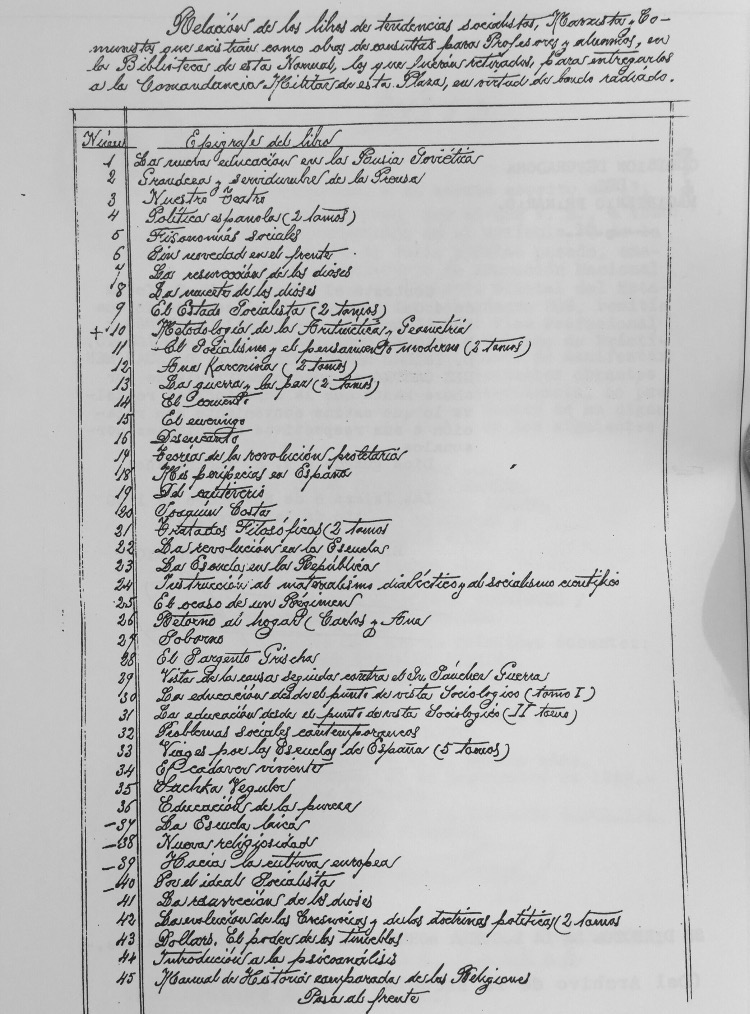 Relación de los libros de tendencias socialistas, Marxista y Co-
munistas que existían como obras de consultas para Profesores y alumnos, en
la Biblioteca de esta Normal, los que fueron retirados, para entregarlos
a la Comandancia Militar de esta Plaza, en virtud de bando radiado.
Núm Epígrafes del libro
1 La nueva educación en la Rusia Soviética
2 Grandeza y servidumbre de la Prensa
3 Nuestro Teatro
4 Política española (2 tomos)
5 Fisonomías sociales
6 Sin novedad en el frente
7 La resurrección de los dioses
8 La muerte de los dioses
9 El Estado Socialista (2 tomos)
+ 10 Metodología de la Aritmética y Geometría
11 El Socialismo y el pensamiento moderno (2 tomos)
12 Ana Karenina (2 tomos)
13 La guerra y la paz (2 tomos)
14 El convento
15 El enemigo
16 Desencanto
17 Teoría de la revolución proletaria
18 Mis peripecias en España
19 Del cautiverio
20 Joaquín Costa
21 Tratados Filosóficos (2 tomos
22 La revolución en la Escuela
23 La Escuela en la República
24 Instrucción al materialismo dialéctico y al socialismo científico
25 El ocaso de un Régimen
26 Retorno al hogar (Carlos y Ana
27 Soborno
28 El Sargento Grischa
29 Vista de la causa seguida contra el Sr. Sánchez Guerra
30 La educación desde el punto de vista Sociológico (tomo I)
31 La educación desde el punto de vista Sociológico (II tomo)
32 Problemas sociales contemporáneos
33 Viages por las Escuelas de España (5 tomos)
34 El cadáver viviente
35 Sachka Yegulev
36 Educación de la pureza
-37 La Escuela laica
-38 Nueva religiosidad
-39 Hacia la cultura europea
-40 Por el ideal Socialista
41 La resurrección de los dioses
42 La evolución de las Creencias y de las doctrinas políticas (2 tomos
43 Dollars. El poder de las tinieblas
44 Introducción a la psicoanálisis
45 Manual de Historia comparada de las Religiones
Pasa al frente